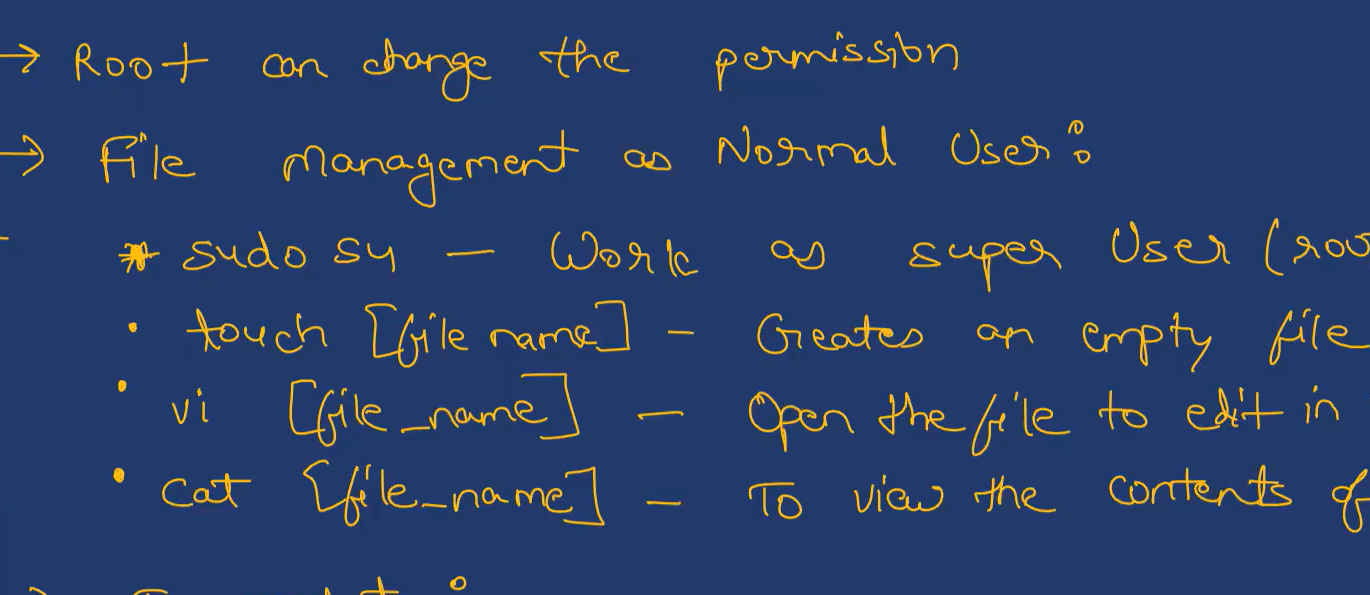 → Root can change the permission
→ File management as Normal User:
* sudo su — Work as super User (roo
• touch [file name] — Creates an empty file
• vi [file_name] — Open the file to edit in
• cat [file_name] — To view the contents of